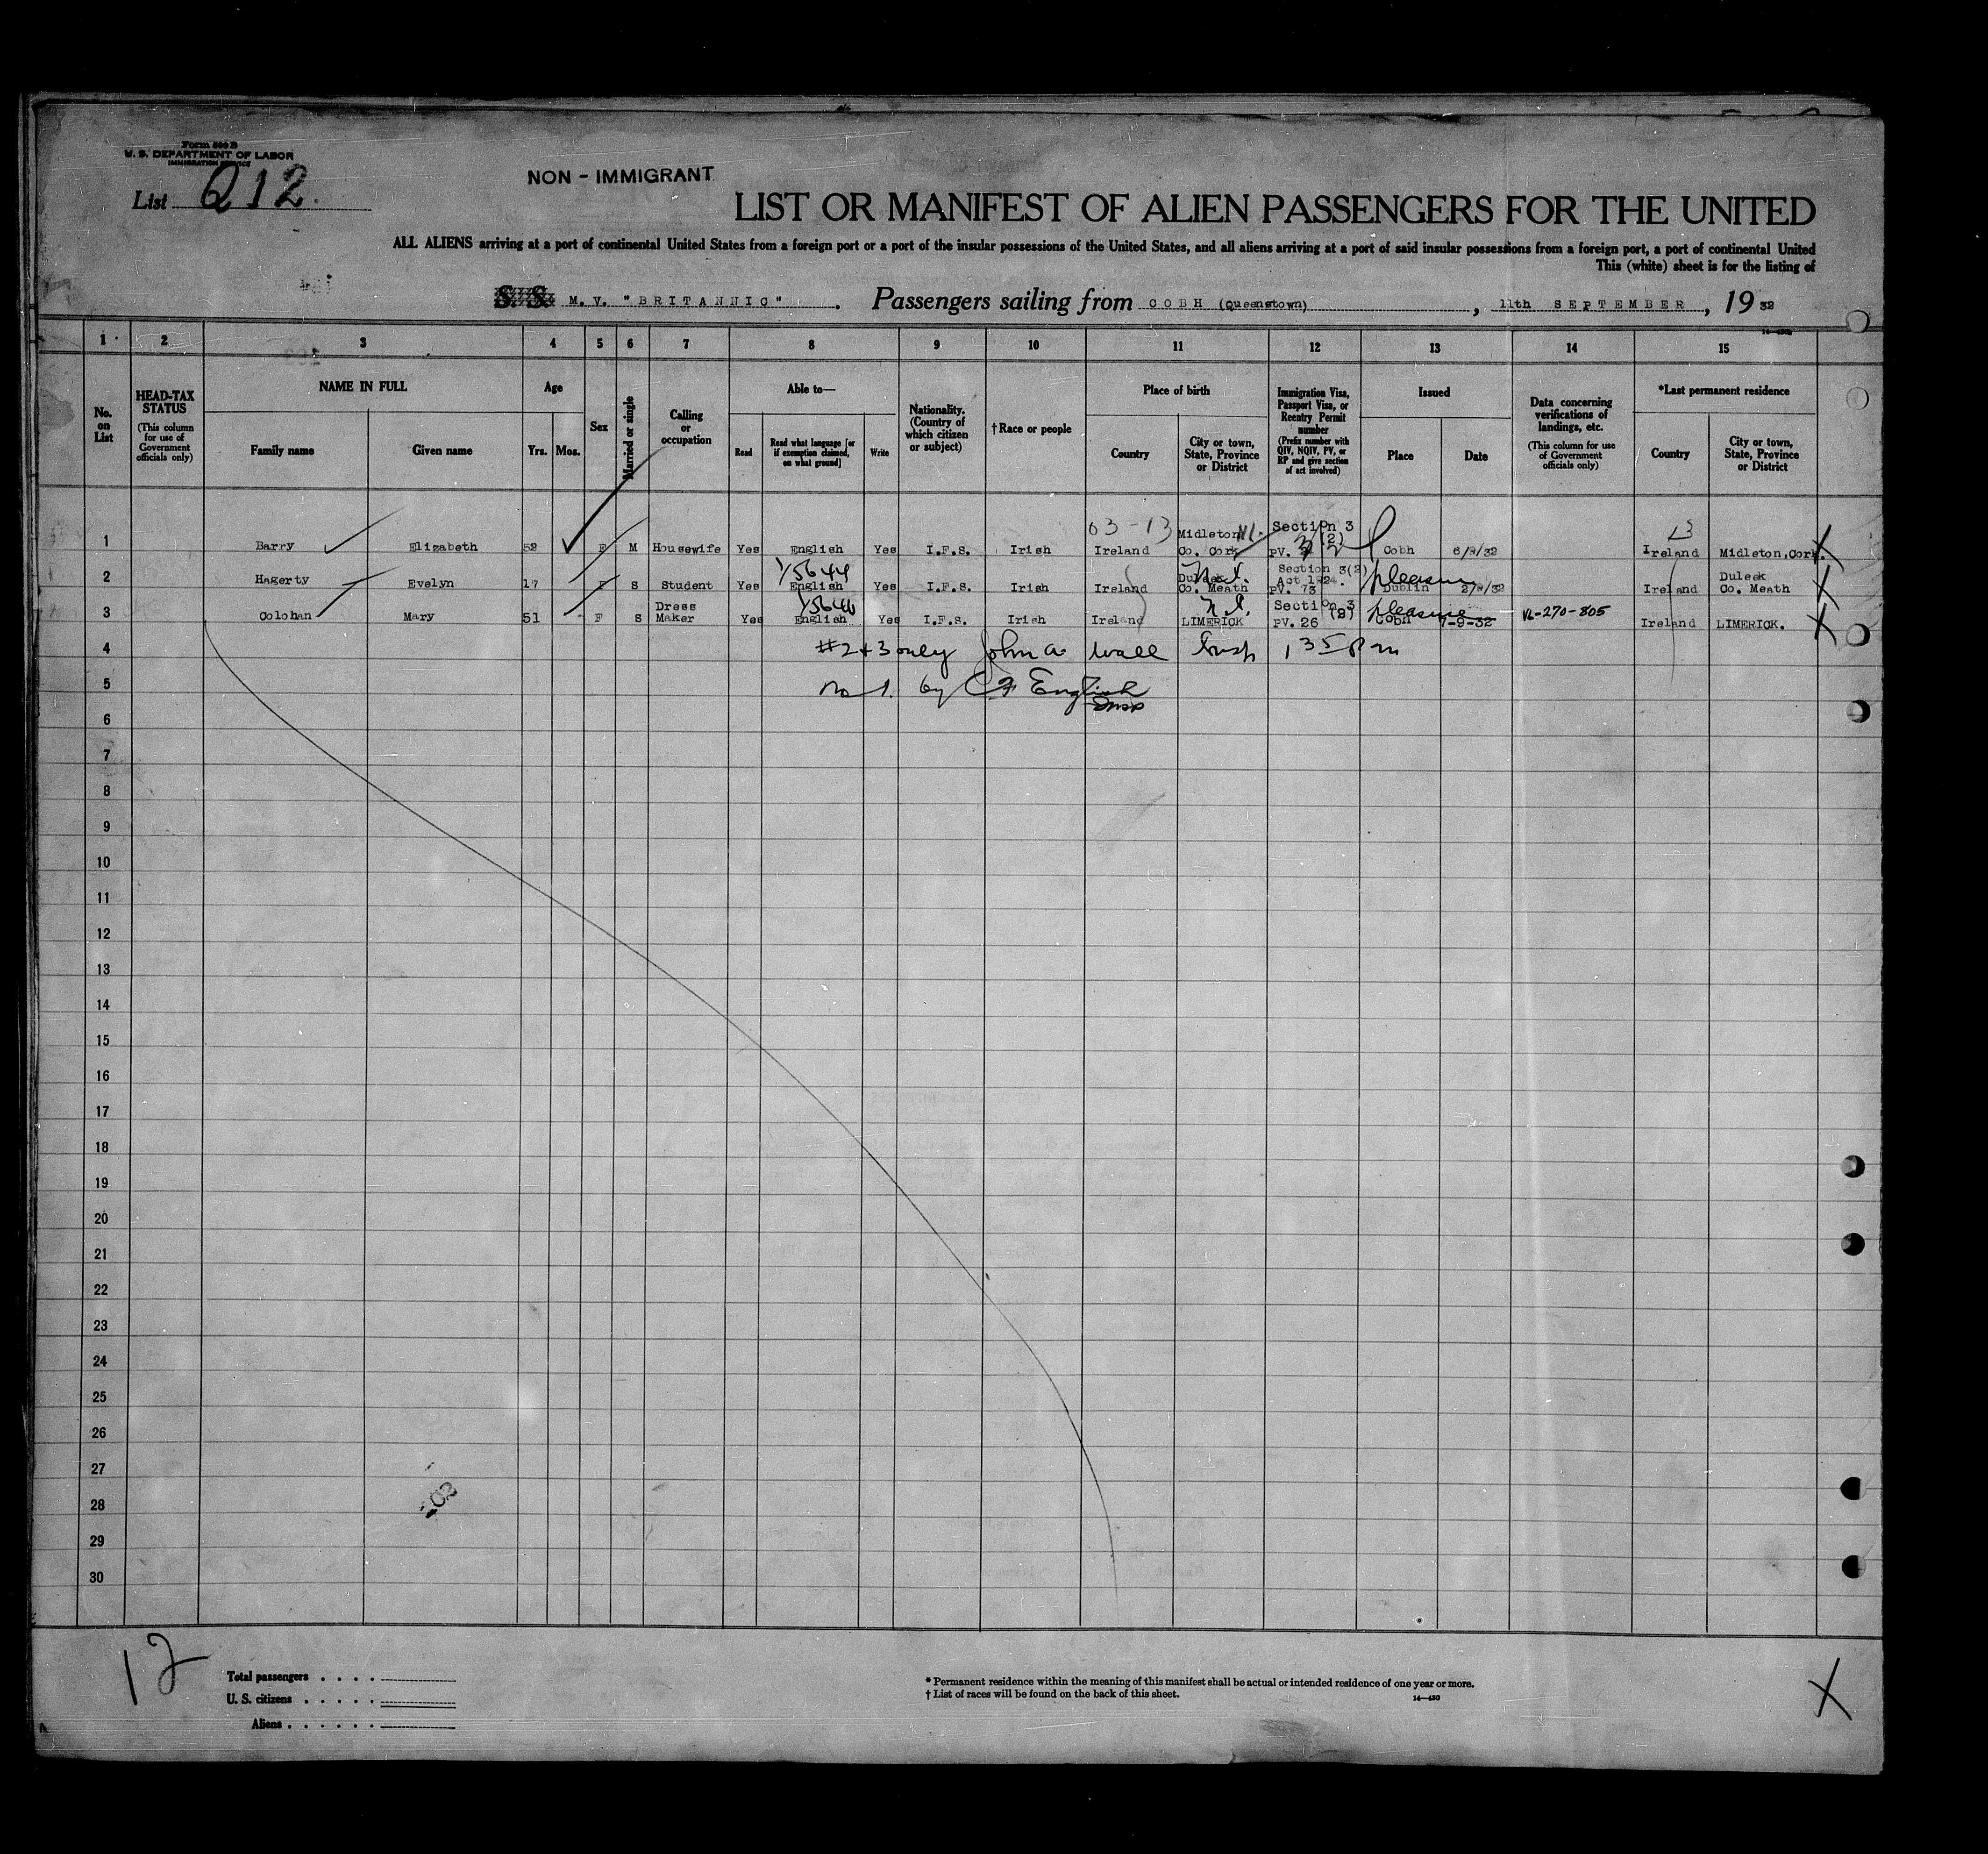 Form 500 B
U. S. DEPARTMENT OF LABOR
IMMIGRATION SERVICE
List Q12.
NON - IMMIGRANT
LIST OR MANIFEST OF ALIEN PASSENGERS FOR THE UNITED
ALL ALIENS arriving at a port of continental United States from a foreign port or a port of the insular possessions of the United States, and all aliens arriving at a port of said insular possessions from a foreign port, a port of continental United
This (white) sheet is for the listing of
S. S. M. V. "BRITANNIC" . Passengers sailing from COBH (Queenstown) , 11th SEPTEMBER , 19 32
1 2 3 4 5 6 7 8 9 10 11 12 13 14 15
No. on List
HEAD-TAX STATUS (This column for use of Government officials only)
NAME IN FULL
Family name
Given name
Age
Yrs. Mos.
Sex
Married or single
Calling or occupation
Able to—
Read
Read what language [or if exemption claimed, on what ground]
Write
Nationality. (Country of which citizen or subject)
†Race or people
Place of birth
Country
City or town, State, Province or District
Immigration Visa, Passport Visa, or Reentry Permit number (Prefix number with QIV, NQIV, PV, or RP and give section of act involved)
Issued
Place
Date
Data concerning verifications of landings, etc. (This column for use of Government officials only)
*Last permanent residence
Country
City or town, State, Province or District
63-13
1 Barry Elizabeth 52 F M Housewife Yes English Yes I.F.S. Irish Ireland Midleton Co. Cork Section 3 (2) PV. Cobh 6/9/32 Ireland Midleton, Cork. X
2 Hagerty Evelyn 17 F S Student Yes English Yes I.F.S. Irish Ireland Duleek Co. Meath Section 3(2) Act 1924. PV. 73 pleasure Dublin 2/9/32 Ireland Duleek Co. Meath X
3 Colohan Mary 51 F S Dress Maker Yes English Yes I.F.S. Irish Ireland LIMERICK Section 3 (2) PV. 26 pleasure Cobh 7-9-32 VL-270-805 Ireland LIMERICK. X
4 #2+3 only John A Wall Insp 1 35 Pm
5 No 1. by C F English
Insp
6
7
8
9
10
11
12
13
14
15
16
17
18
19
20
21
22
23
24
25
26
27
28
29
30
12
Total passengers . . . .
U. S. citizens . . . . .
Aliens . . . . . .
* Permanent residence within the meaning of this manifest shall be actual or intended residence of one year or more.
† List of races will be found on the back of this sheet.
14—430
X